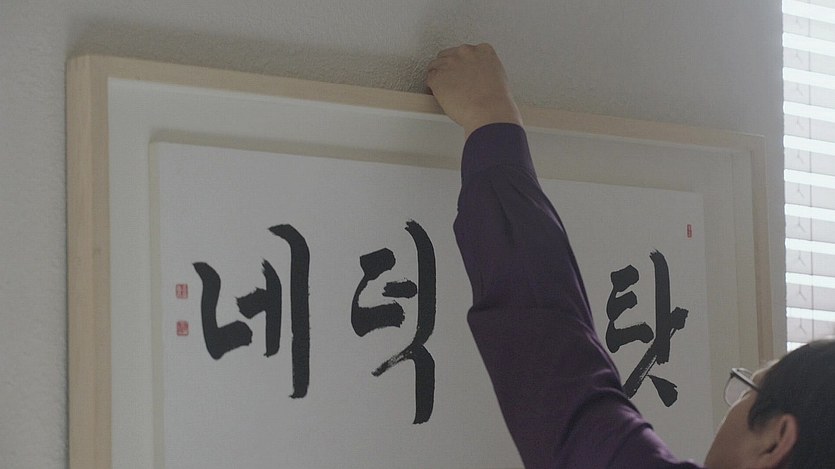 네 덕 탓